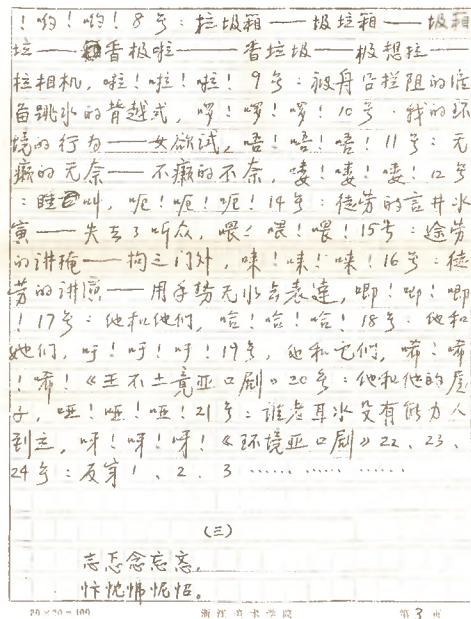 ！哟！哟！8号：拉圾箱——圾拉箱——圾箱
拉——香极啦——香拉圾——极想拉——
拉相机，啦！啦！啦！9号：被舟
鱼跳水的背越式，啰！啰！啰！10号：我的环
境的行为——女欲试，唔！唔！唔！11号：无
癞的无奈——不癞的不奈，喽！喽！喽！12号
：睦叫，呃！呃！呃！14号：徒劳的言井水
寅——失去了听众，喂！喂！喂！15号：途劳
的讲掩——拘之门外，唻！唻！唻！16号：徒
劳的讲演——用手势无水去表达，唧！唧！唧
！17号：他和他们，哈！哈！哈！18号：他和
她们，吁！吁！吁！19号，他和它们，唏！唏
！唏！《王不土竟亚口剧》20号：他和他的屋
子，哑！哑！哑！21号：谁老耳水没有能力人
到立，呀！呀！呀！《环境亚口剧》22、23、
24号：反穿1、2、3 …… …… ……
（三）
志忘念忘
忭忱怫怩怊。
20×20=400 浙江美术学院 第3页